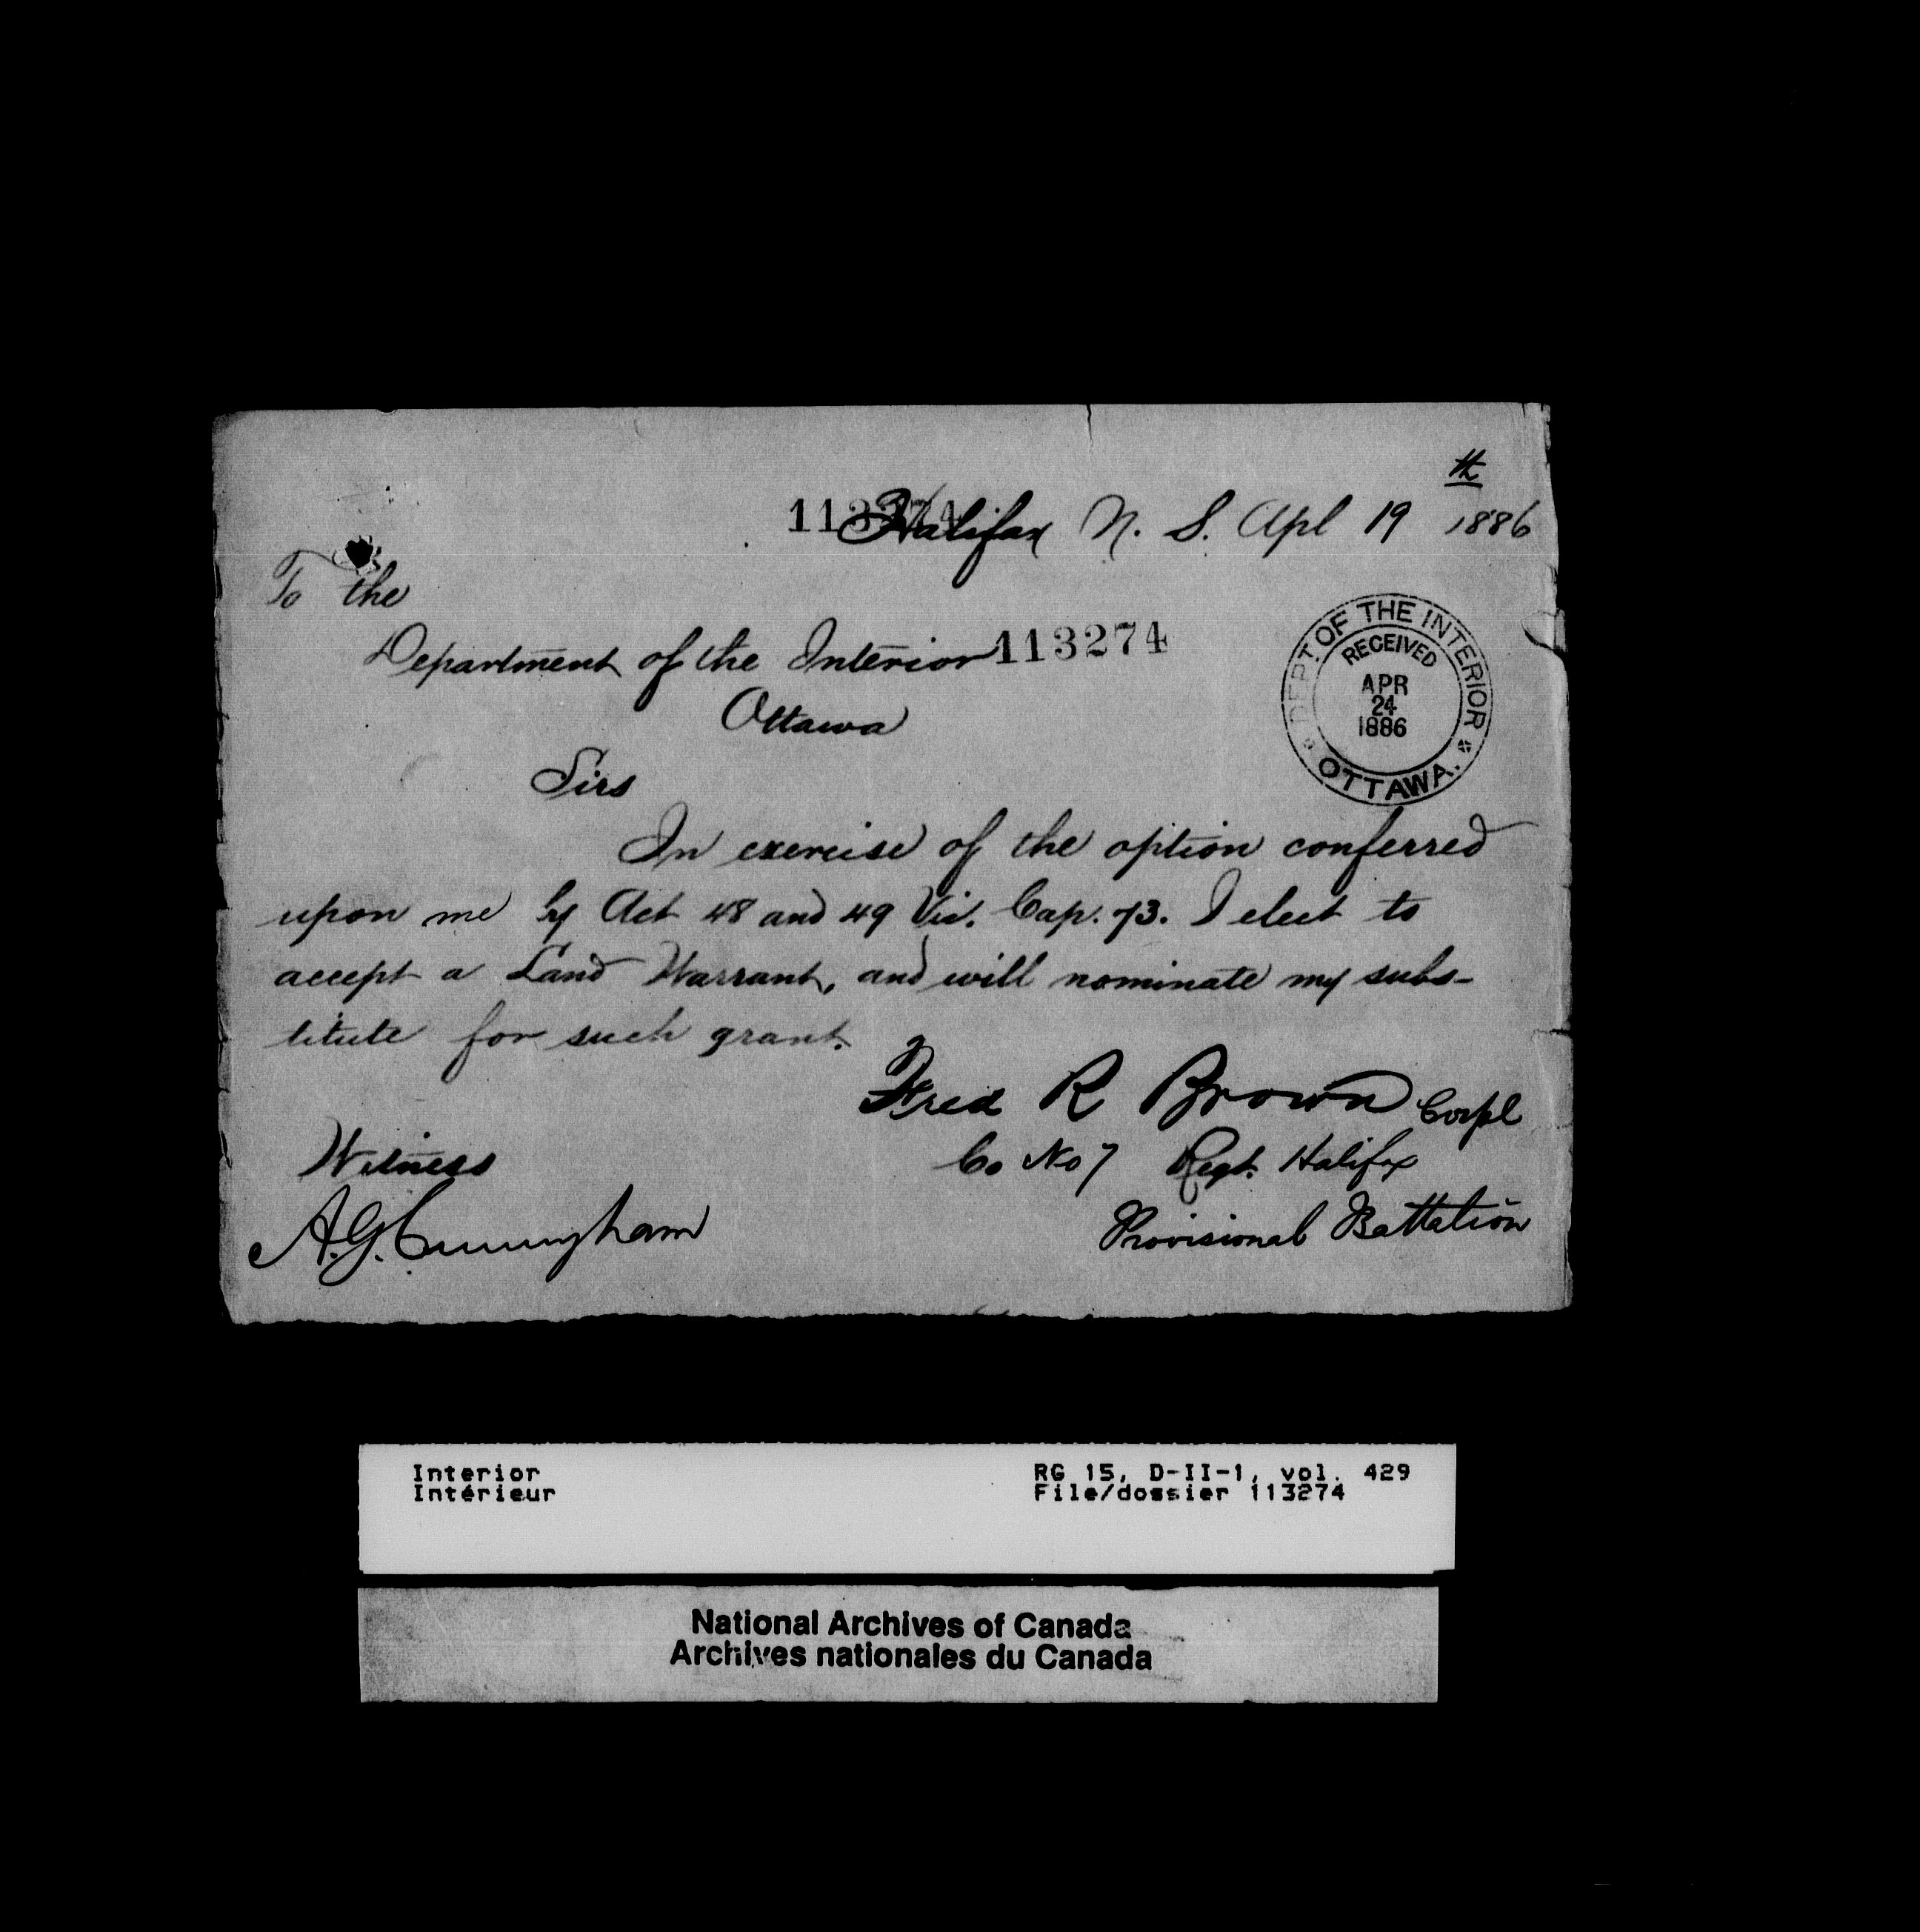 113274
Halifax N. S. Apl 19th 1886
To the
Department of the Interior 113274
Ottawa
DEPT. OF THE INTERIOR
RECEIVED
APR
24
1886
OTTAWA.
Sirs
In exercise of the option conferred
upon me by Act 48 and 49 Vic. Cap. 73. I elect to
accept a Land Warrant, and will nominate my subs-
titute for such grant.
Fred R Brown Corpl
Co No 7 Regt. Halifax
Provisional Battalion
Witness
A. G. Cunningham
Interior
Intérieur
RG 15, D-II-1, vol. 429
File/dossier 113274
National Archives of Canada
Archives nationales du Canada